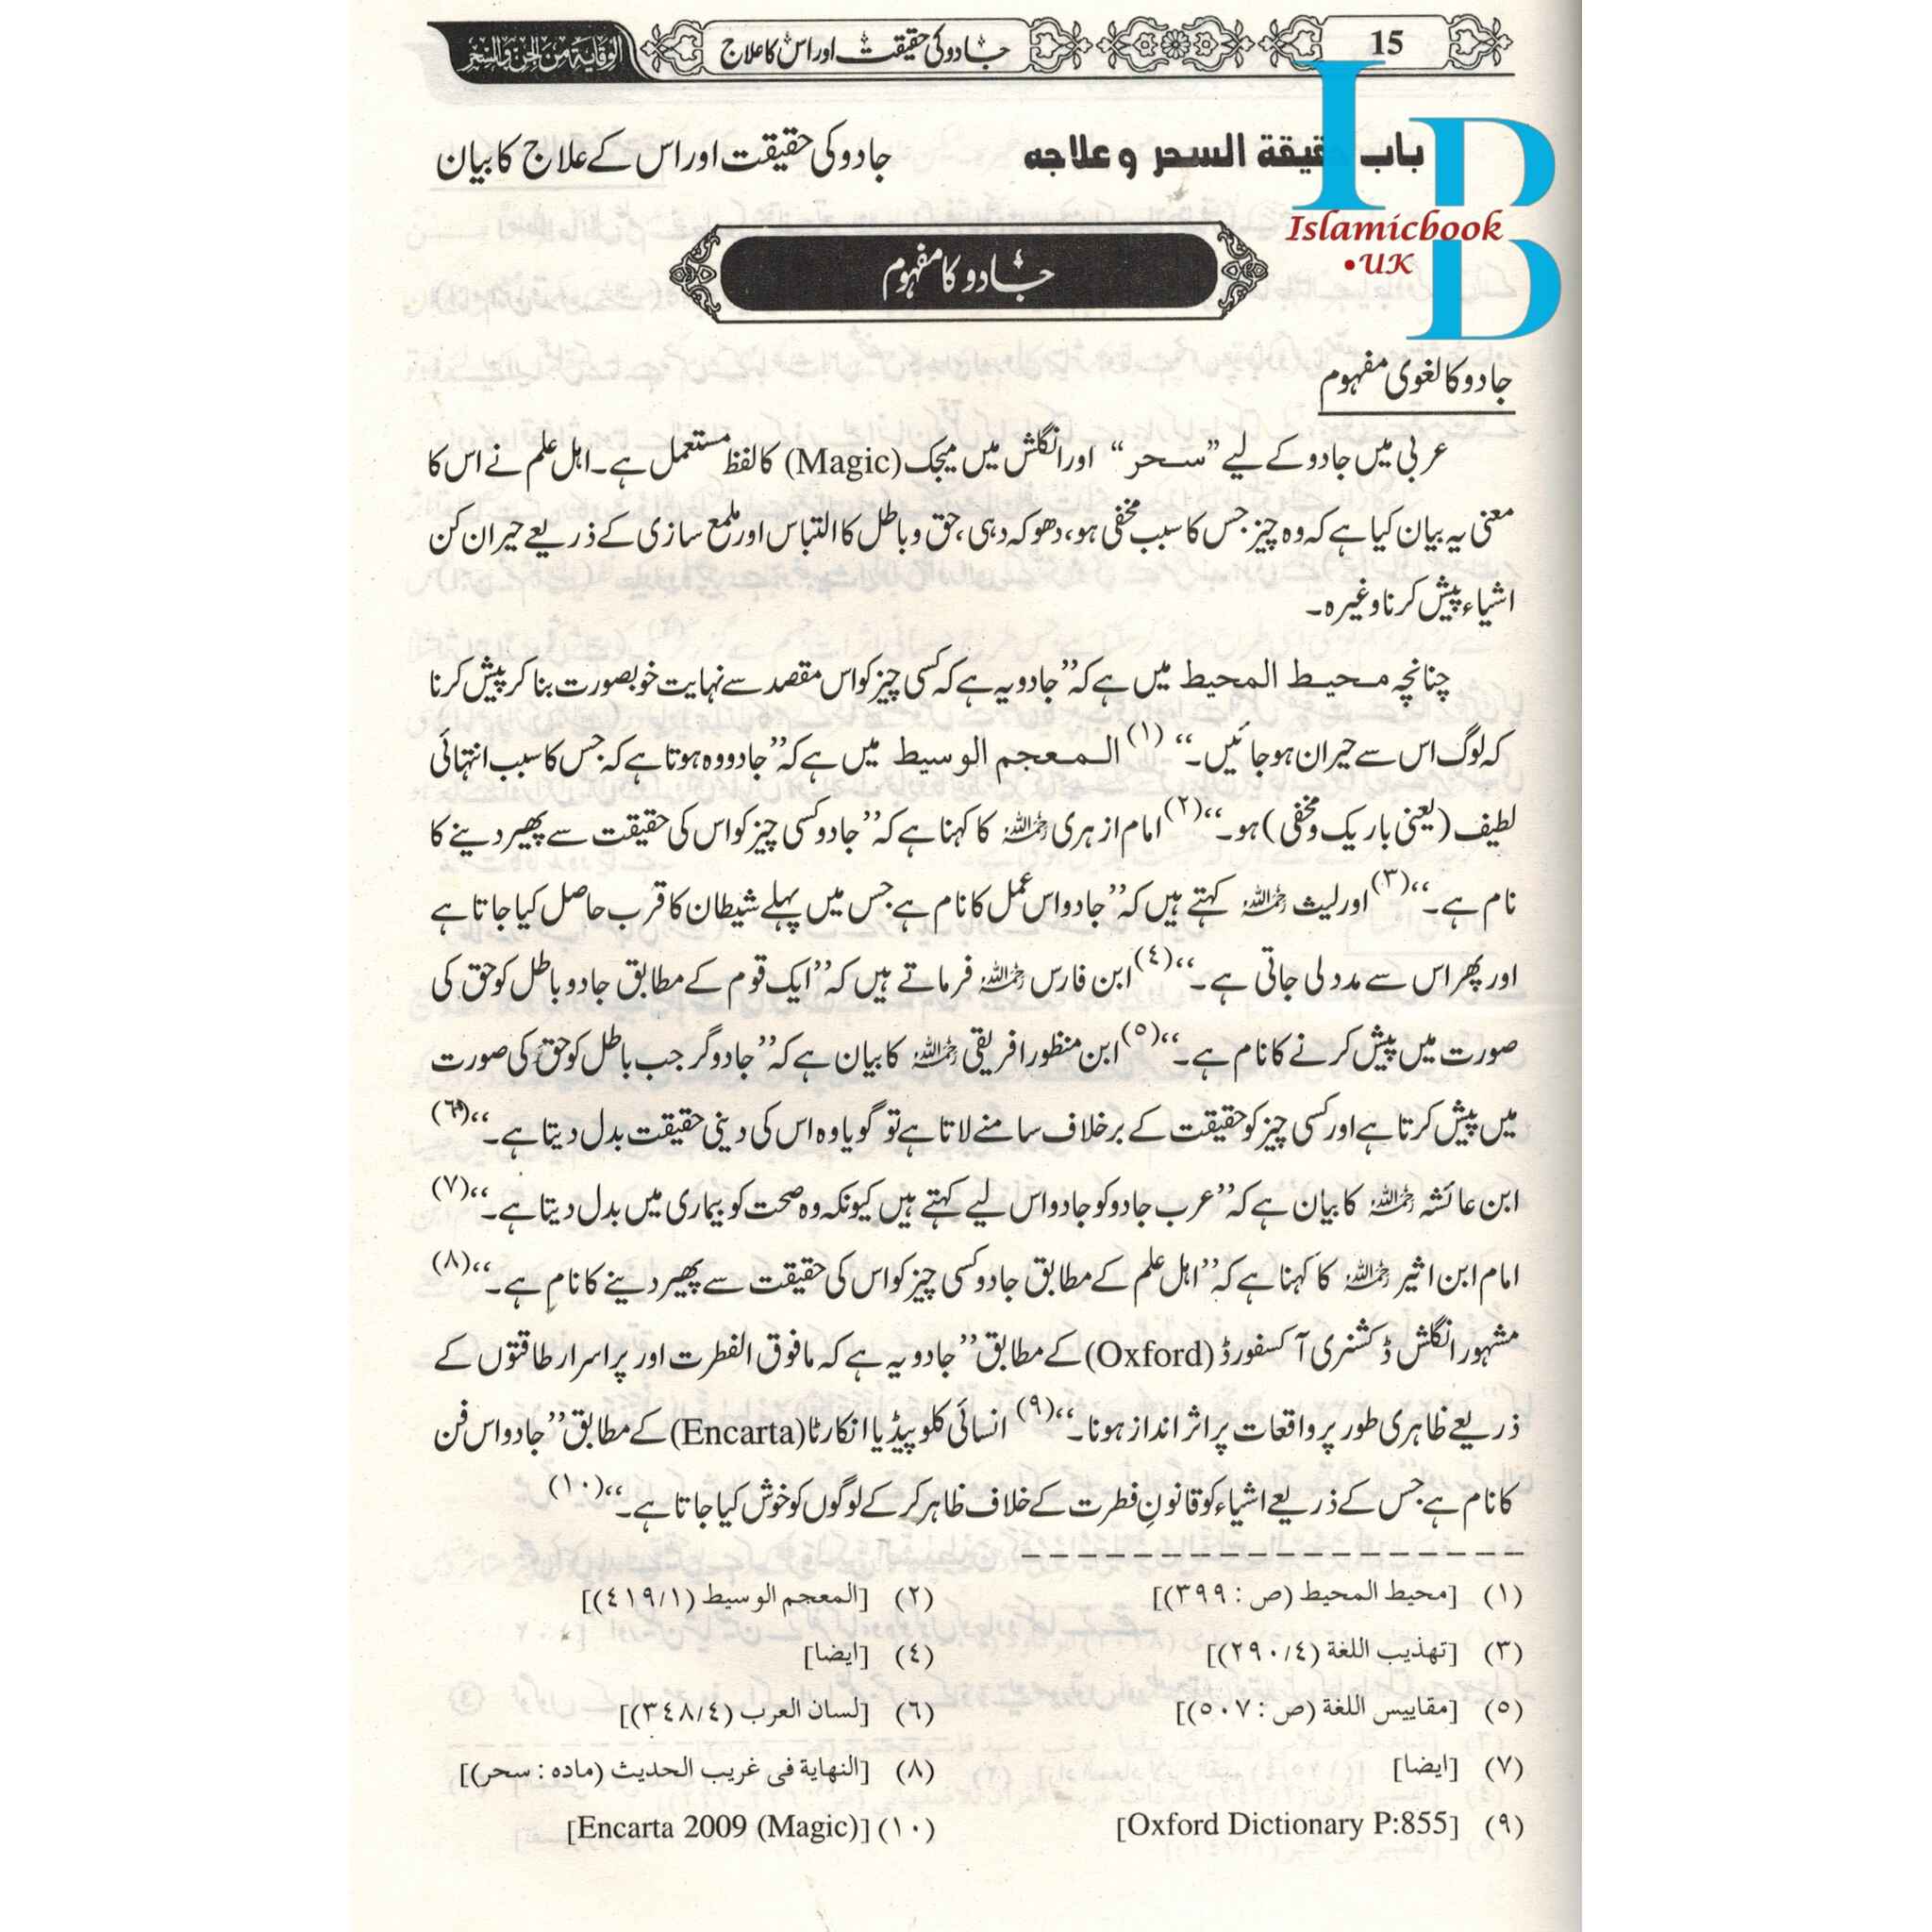 15
جادو کی حقیقت اور اس کا علاج
الوقایة من الجن والسحر
باب حقیقة السحر و علاجه
جادو کی حقیقت اور اس کے علاج کا بیان
Islamicbook
•UK
جادو کا مفہوم
جادو کا لغوی مفہوم
عربی میں جادو کے لیے ”سحر“ اور انگلش میں میجک (Magic) کا لفظ مستعمل ہے۔ اہل علم نے اس کا
معنی یہ بیان کیا ہے کہ وہ چیز جس کا سبب مخفی ہو، دھوکہ دہی، حق و باطل کا التباس اور ملمع سازی کے ذریعے حیران کن
اشیاء پیش کرنا وغیرہ۔
چنانچہ محیط المحیط میں ہے کہ ”جادو یہ ہے کہ کسی چیز کو اس مقصد سے نہایت خوبصورت بنا کر پیش کرنا
کہ لوگ اس سے حیران ہو جائیں۔“ (۱) المعجم الوسیط میں ہے کہ ”جادو وہ ہوتا ہے کہ جس کا سبب انتہائی
لطیف (یعنی باریک و مخفی) ہو۔“ (۲) امام ازہری رحمہ اللہ کا کہنا ہے کہ ”جادو کسی چیز کو اس کی حقیقت سے پھیر دینے کا
نام ہے۔“ (۳) اور لیث رحمہ اللہ کہتے ہیں کہ ”جادو اس عمل کا نام ہے جس میں پہلے شیطان کا قرب حاصل کیا جاتا ہے
اور پھر اس سے مدد لی جاتی ہے۔“ (٤) ابن فارس رحمہ اللہ فرماتے ہیں کہ ”ایک قوم کے مطابق جادو باطل کو حق کی
صورت میں پیش کرنے کا نام ہے۔“ (٥) ابن منظور افریقی رحمہ اللہ کا بیان ہے کہ ”جادوگر جب باطل کو حق کی صورت
میں پیش کرتا ہے اور کسی چیز کو حقیقت کے برخلاف سامنے لاتا ہے تو گویا وہ اس کی دینی حقیقت بدل دیتا ہے۔“ (٦)
ابن عائشہ رحمہ اللہ کا بیان ہے کہ ”عرب جادو کو جادو اس لیے کہتے ہیں کیونکہ وہ صحت کو بیماری میں بدل دیتا ہے۔“ (۷)
امام ابن اثیر رحمہ اللہ کا کہنا ہے کہ ”اہل علم کے مطابق جادو کسی چیز کو اس کی حقیقت سے پھیر دینے کا نام ہے۔“ (۸)
مشہور انگلش ڈکشنری آکسفورڈ (Oxford) کے مطابق ”جادو یہ ہے کہ مافوق الفطرت اور پر اسرار طاقتوں کے
ذریعے ظاہری طور پر واقعات پر اثر انداز ہونا۔“ (۹) انسائی کلو پیڈیا انکارٹا (Encarta) کے مطابق ”جادو اس فن
کا نام ہے جس کے ذریعے اشیاء کو قانونِ فطرت کے خلاف ظاہر کر کے لوگوں کو خوش کیا جاتا ہے۔“ (۱۰)
(۱) [محیط المحیط (ص : ۳۹۹)] (۲) [المعجم الوسیط (٤۱۹/۱)]
(۳) [تهذیب اللغة (۲۹۰/٤)] (٤) [ایضا]
(٥) [مقاییس اللغة (ص : ٥۰۷)] (٦) [لسان العرب (۳٤۸/٤)]
(۷) [ایضا] (۸) [النهایة فی غریب الحدیث (ماده : سحر)]
(۹) [Oxford Dictionary P:855] (۱۰) [Encarta 2009 (Magic)]